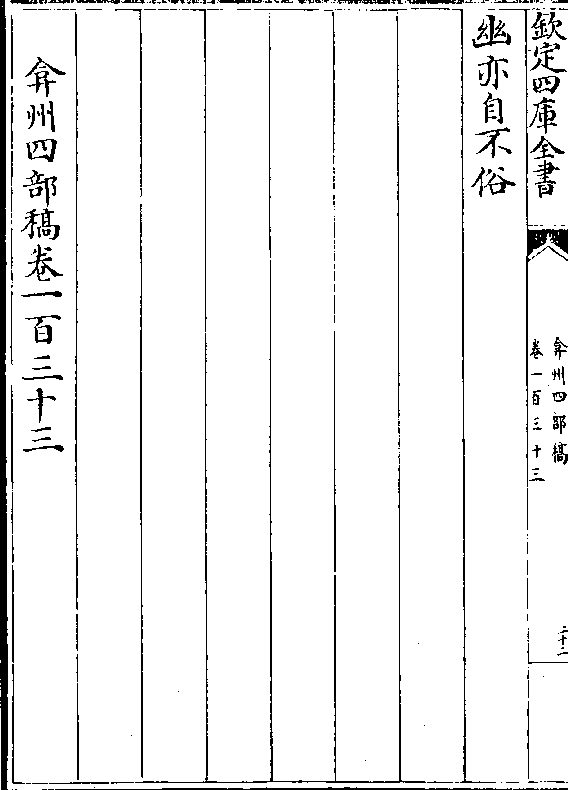 欽定四庫全書
弇州四部稿
卷一百三十三
二十二
幽亦自不俗
弇州四部稿卷一百三十三